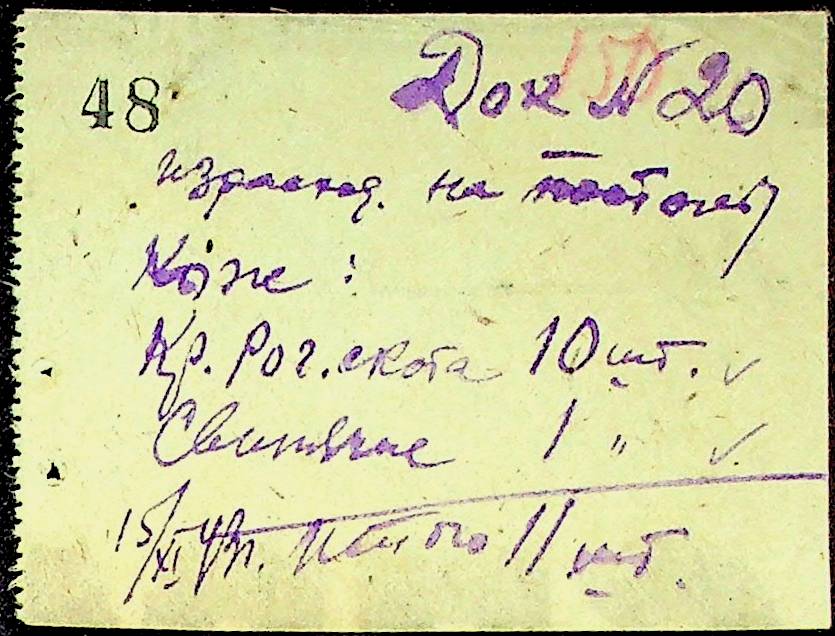 48
Док № 20
израсход. на постолы
Кож :
Кр. Рог. скота 10 шт. ✓
Свиные 1 " ✓
15/XI 43г. Итого 11 шт.